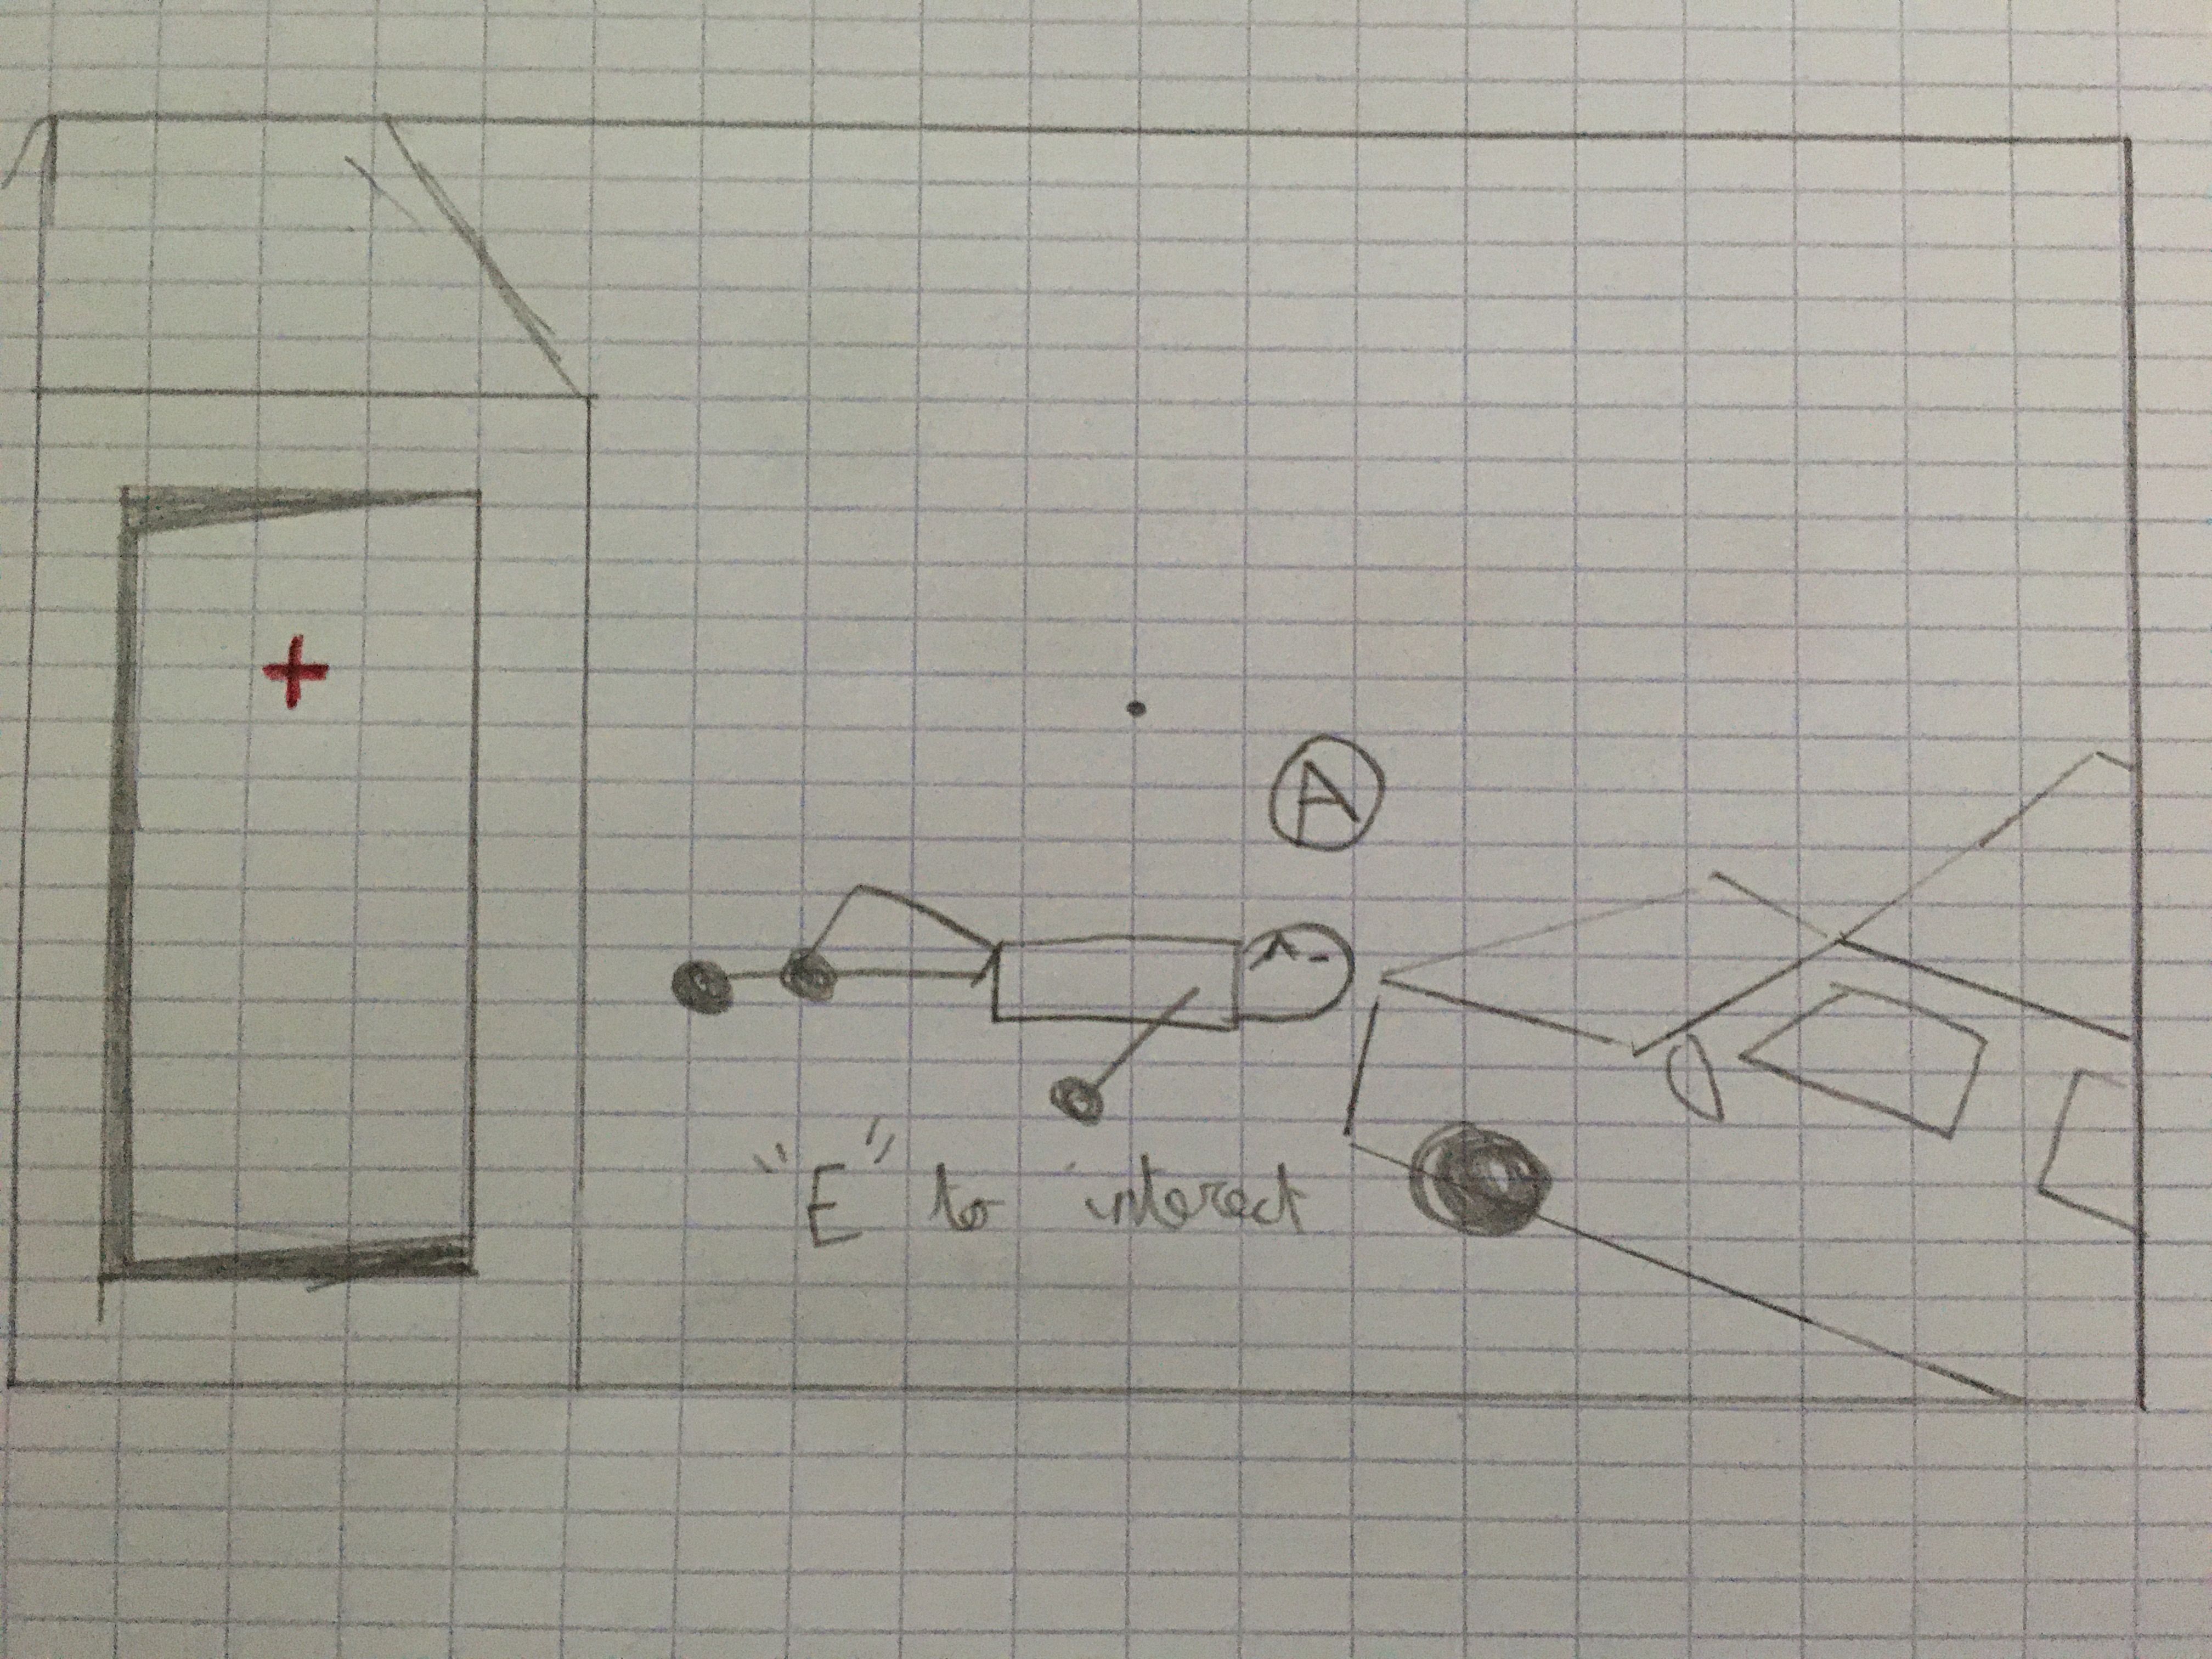 A
"E" to interact